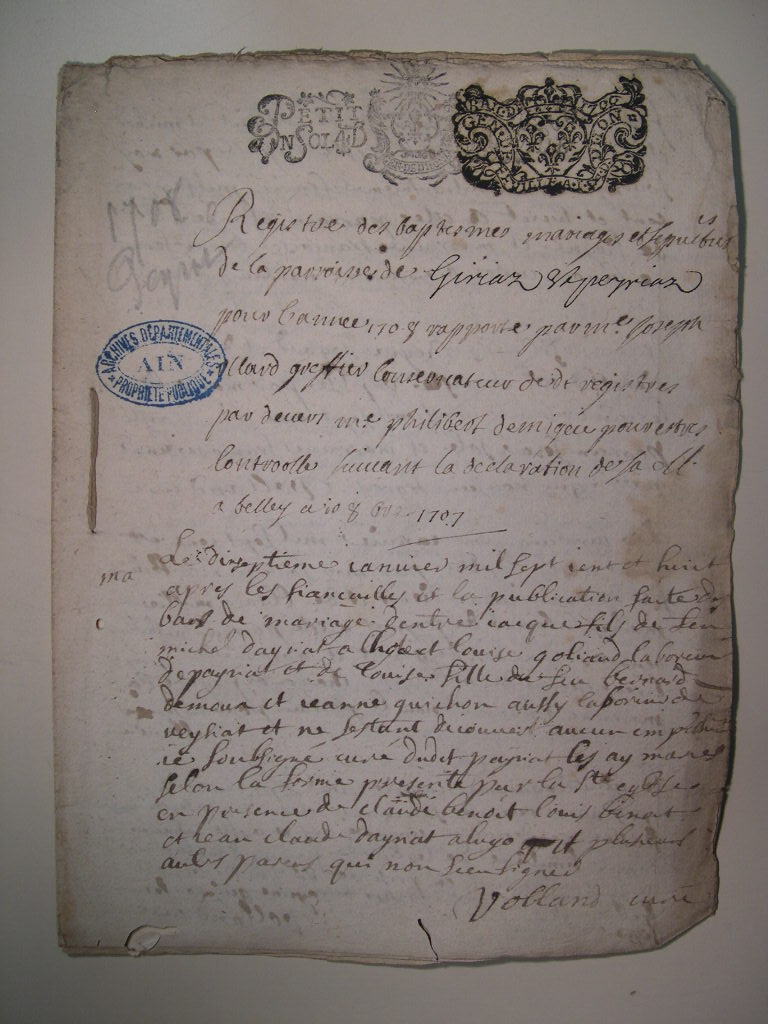 PETIT
EN SCLAB
GENER DE
1708
Peyriat
Registre des baptesmes mariages et sepultures
de la parroisse de Giriaz et peyriaz
pour l'annee 1708 rapporte par me Joseph
allard greffier Conservateur de dt registres
par devers me philibert demigeu pour estre
Controolle suivant la declaration de sa M.
a belley a 1708
ARCHIVES DÉPARTEMENTALES
AIN
PROPRIÉTÉ PUBLIQUE
ma Le dixseptieme ianvier mil sept cent et huict
apres les fiancailles et la publication faite des
bans de mariage dentre iacque fils de feu
michel dayriat et louise goliand laboreur
de payriat et de louise fille du feu bernard
demoux et ieanne guichon aussy laborieur de
veysiat et ne sestant decouvert aucun empeschem
ie soubsigné curé dudit payriat les ay mariés
selon la forme presente par la Ste eglise
en presence de claude benoit louis benoit
et iean claude dayriat et plusieurs
aultres parens qui non sceu signer
Volland curé